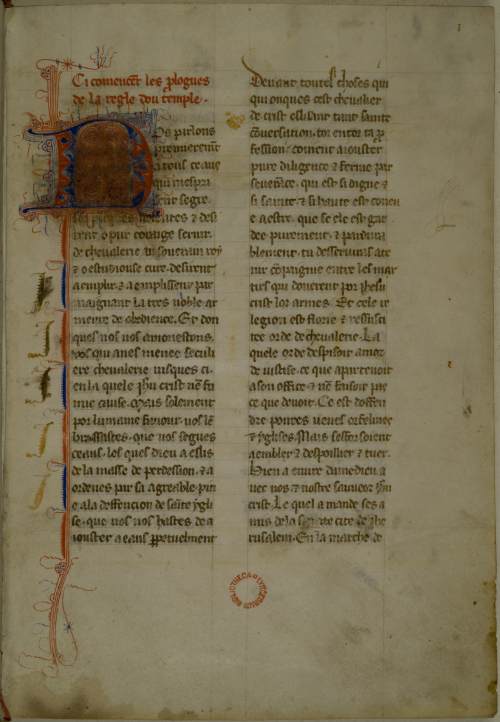 Ci comencēt les p̱logues
de la regle dou temple.
Nos parlons
premierement
a tous ceaus
qui mespri
sent segre
lor propres volentes & desi
rent o pur corage seruir
de cheualerie au souerain roy
& o estudiouse cure desirent
a emplir & a emplissent par
maignant la tres noble ar
meure de obedience. Et don
ques nos uos amonestons.
uos qui aues menee seculi
ere cheualerie iusques ci
en la quele ihū crist nē fu
mie cause. Mais solement
por humaine fauour uos lē
brassastes. que uos segues
ceaus. les ques dieu a eslis
de la masse de perdession. & a
ordenes par sa agreable pitie
a la deffencion de saīte ygli
se. que uos uos hastes de a
iouster a eaus p̱petuelment
Deuant toutes choses qui
qui onques cest cheualier
de crist eslisant tant sainte
cōuersation. toi entor ta p̱
fession couient aiouster
pure diligence & ferme per
seuerāce. qui est si digne &
si sainte. & si haute est coneu
e a estre. que se ele est gar
dee purement. & pardura
blement. tu desseruiras a te
nir cōpaignie entre les mar
tirs qui donerent por ihesu
crist lor armes. En cele re
legion est florie & resusci
tee orde de cheualerie. La
quele orde despisoit amor
de iustise. ce que apartenoit
a son office & nē faisoit pas
ce que deuoit. Ce est deffen
dre poures ueues orfelines
& yglises. Mais sestorsoient
a embler & despoillier & tuer.
Bien a euure dame dieu a
uec nos. & nostre sauueor ihū
crist. Le quel a mande ses a
mis de la sainte cite de ihe
rusalem. En la marche de